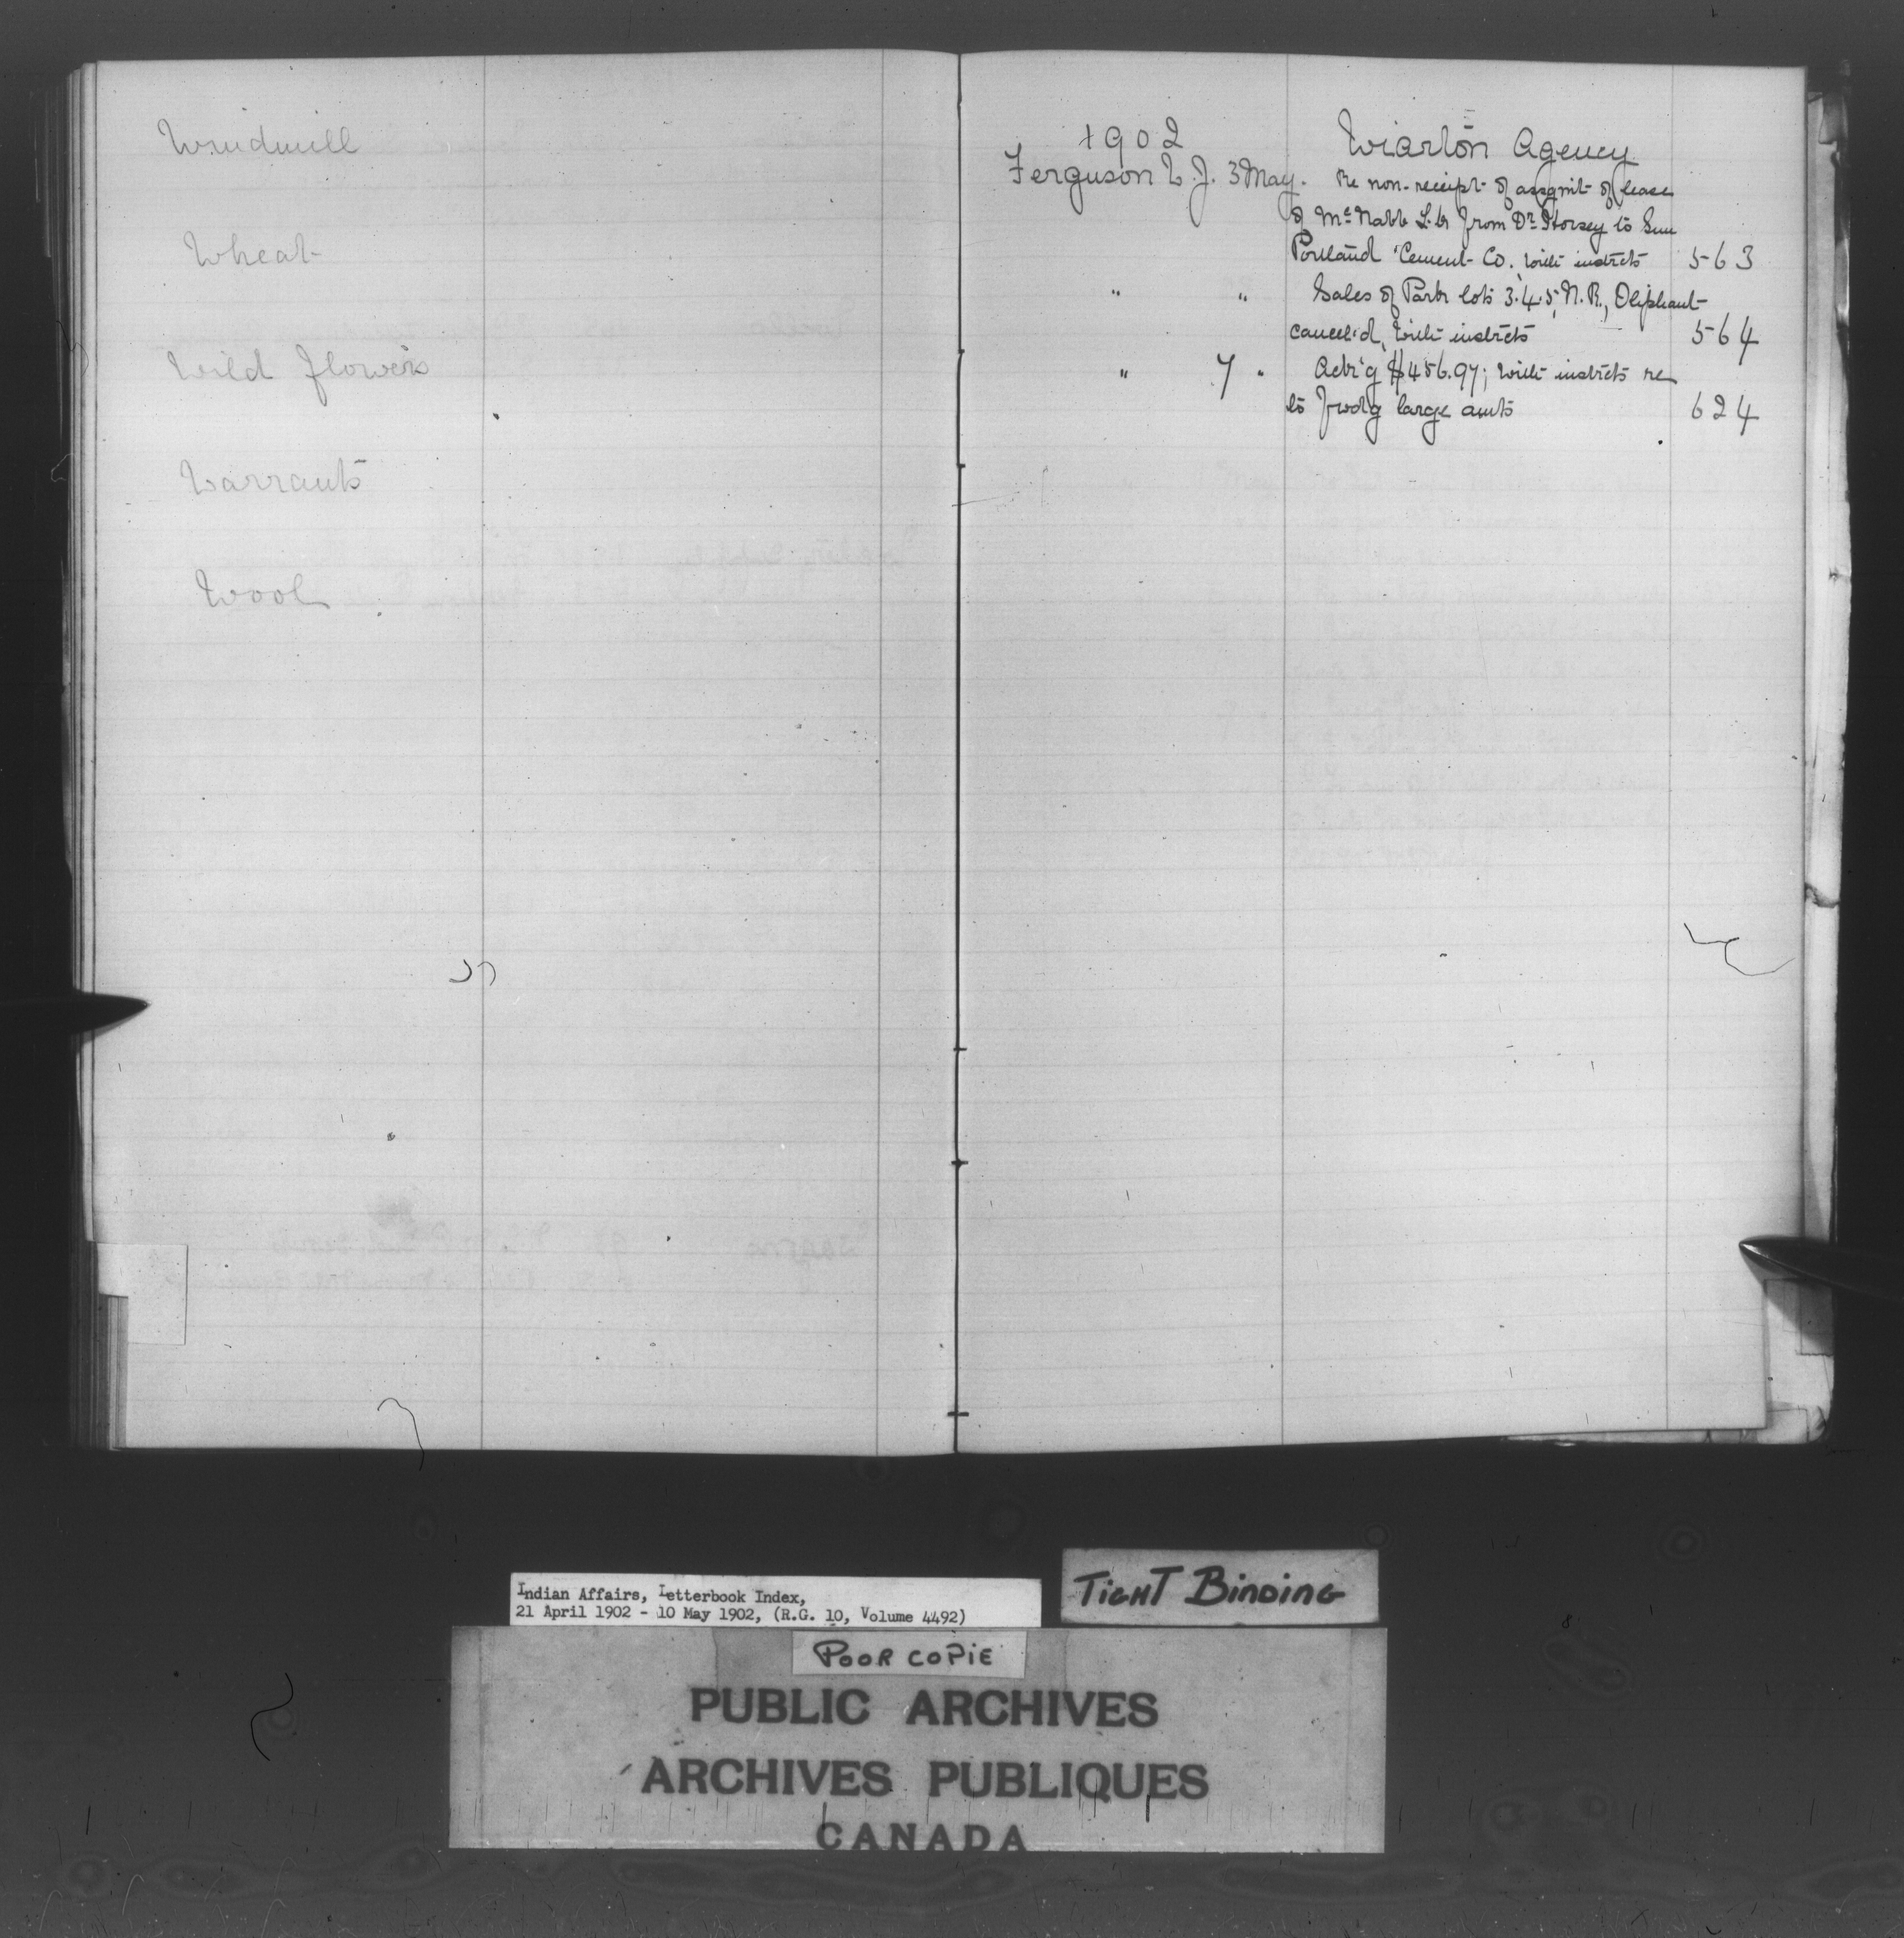 Windmill
Wheat
Wild flowers
Warrants
Wool
1902 Wiarton Agency
Ferguson W. J. 3 May. Re non-receipt of assgmt of lease
of McNabb L. from Dr. Horsey to Sun
Portland Cement Co., with instrcts 563
" " Sales of Park lots 3.4.5, N. R., Oliphant
cancel'd, with instrcts 564
" 7 " Ack'g $456.97; with instrcts re
to fwdg large amts 624
Indian Affairs, Letterbook Index,
21 April 1902 - 10 May 1902, (R.G. 10, Volume 4492)
TIGHT BINDING
POOR COPIE
PUBLIC ARCHIVES
ARCHIVES PUBLIQUES
CANADA